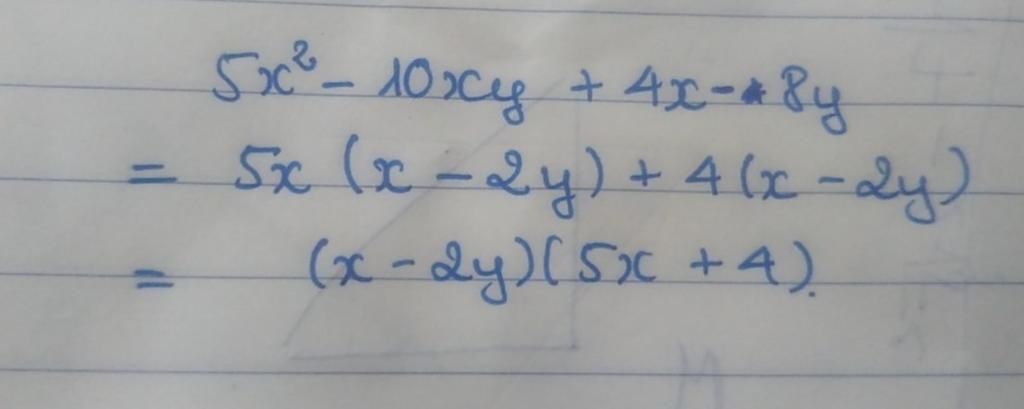 5x² - 10xy + 4x - 8y
= 5x (x - 2y) + 4 (x - 2y)
= (x - 2y)(5x + 4).